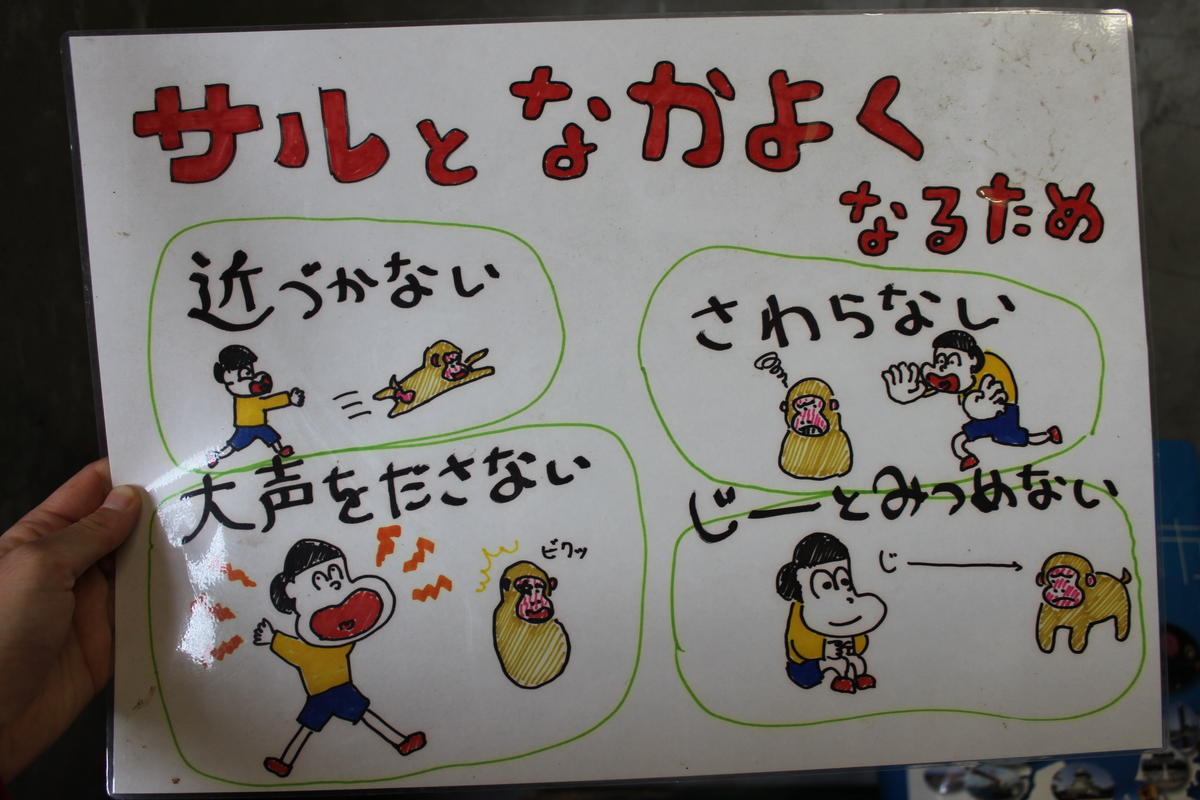 サルとなかよく
なるため
近づかない
さわらない
大声をださない
ビクッ
じーとみつめない
じ